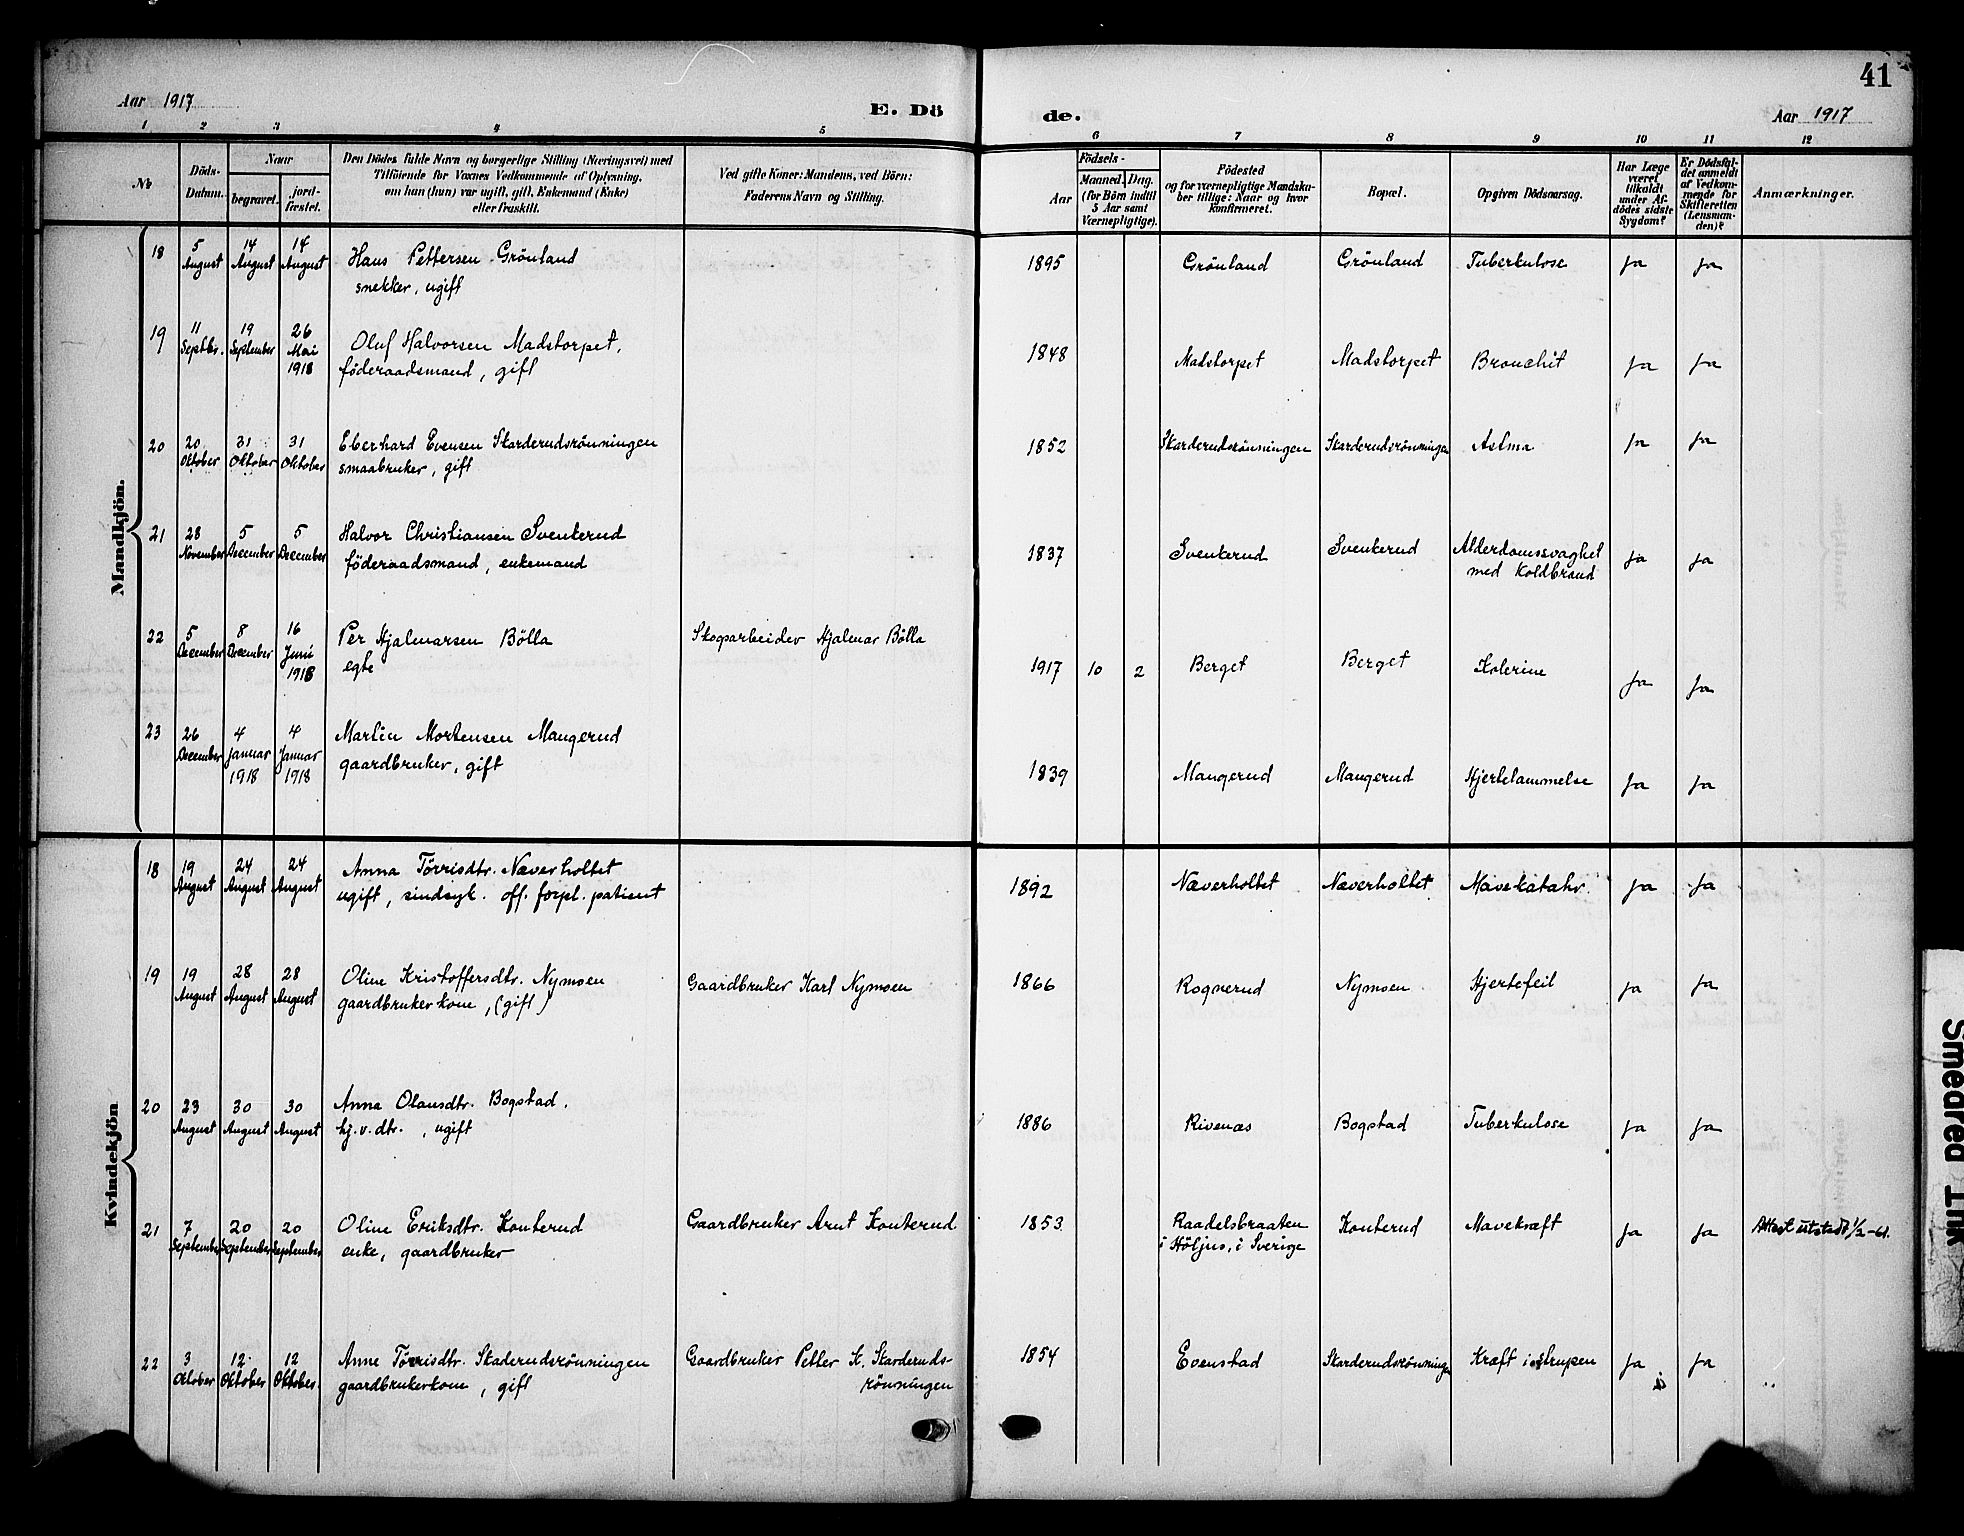 41
Aar 1917
E. Dö
de.
Aar 1917
1 2 3 4 5 6 7 8 9 10 11 12
No
Döds-
Datum.
Naar
begravet.
jord-
fæstet.
Den Dödes fulde Navn og borgerlige Stilling (Næringsvei) med
Tilföiende for Voxnes Vedkommende af Oplysning,
om han (hun) var ugift, gift, Enkemand (Enke)
eller fraskilt.
Ved gifte Koner: Mandens, ved Börn:
Faderens Navn og Stilling.
Födsels-
Aar
Maaned. Dag.
(for Börn indtil
5 Aar samt
Værnepligtige).
Födested
og for værnepligtige Mandska-
ber tillige: Naar og hvor
konfirmeret.
Bopæl.
Opgiven Dödsaarsag.
Har Læge
været
tilkaldt
under Af-
dödes sidste
Sygdom?
Er Dödsfal-
det anmeldt
af Vedkom-
mende for
Skifteretten
(Lensman-
den)?
Anmærkninger.
Mandkjön.
18 5 August 14 August 14 August Hans Pettersen Grönland 1895 Grönland Grönland Tuberkulose ja ja
snekker, ugift
19 11 Septbr. 19 September 26 Mai 1918 Oluf Halvorsen Madstorpet, 1848 Madstorpet Madstorpet Bronchit ja ja
föderaadsmand, gift
20 20 Oktober 31 Oktober 31 Oktober Eberhard Evensen Skarderudsrönningen 1852 Skarderudsrönningen Skarderudsrönningen Astma ja ja
smaabruker, gift
21 28 November 5 December 5 December Halvor Christiansen Svenkerud 1837 Svenkerud Svenkerud Alderdomssvaghet ja ja
föderaadsmand, enkemand med Koldbrand
22 5 December 8 December 16 Juni 1918 Per Hjalmarsen Bölla Skogsarbeider Hjalmar Bölla 1917 10 2 Berget Berget Kolerine ja ja
egte
23 26 December 4 Januar 1918 4 Januar 1918 Martin Mortensen Mangerud 1839 Mangerud Mangerud Hjertelammelse ja ja
gaardbruker, gift
Kvindekjön
18 19 August 24 August 24 August Anna Törrisdtr. Næverholtet 1892 Næverholtet Næverholtet Mavekatahr ja ja
ugift, sindsyk. off. forpl. patient
19 19 August 28 August 28 August Oline Kristoffersdtr. Nymoen Gaardbruker Karl Nymoen 1866 Rognerud Nymoen Hjertefeil ja ja
gaardbrukerkone, (gift)
20 23 August 30 August 30 August Anna Olausdtr. Bogstad. 1886 Rivenæs Bogstad Tuberkulose ja ja
hj.v.dtr. , ugift
21 7 September 20 September 20 September Oline Eriksdtr. Konterud Gaardbruker Arnt Konterud 1853 Raadelsbraaten Konterud Mavekræft ja ja Attest utstedt 1/2-61.
enke, gaardbruker i Höljus, i Sverige
22 3 Oktober 12 Oktober 12 Oktober. Anne Törrisdtr. Skaderudsrönningen Gaardbruker Petter K. Skarderuds- 1854 Evenstad Skarderudsrönningen Kræft i strupen ja ja
gaardbrukerkone, gift rönningen
Smeared Ink